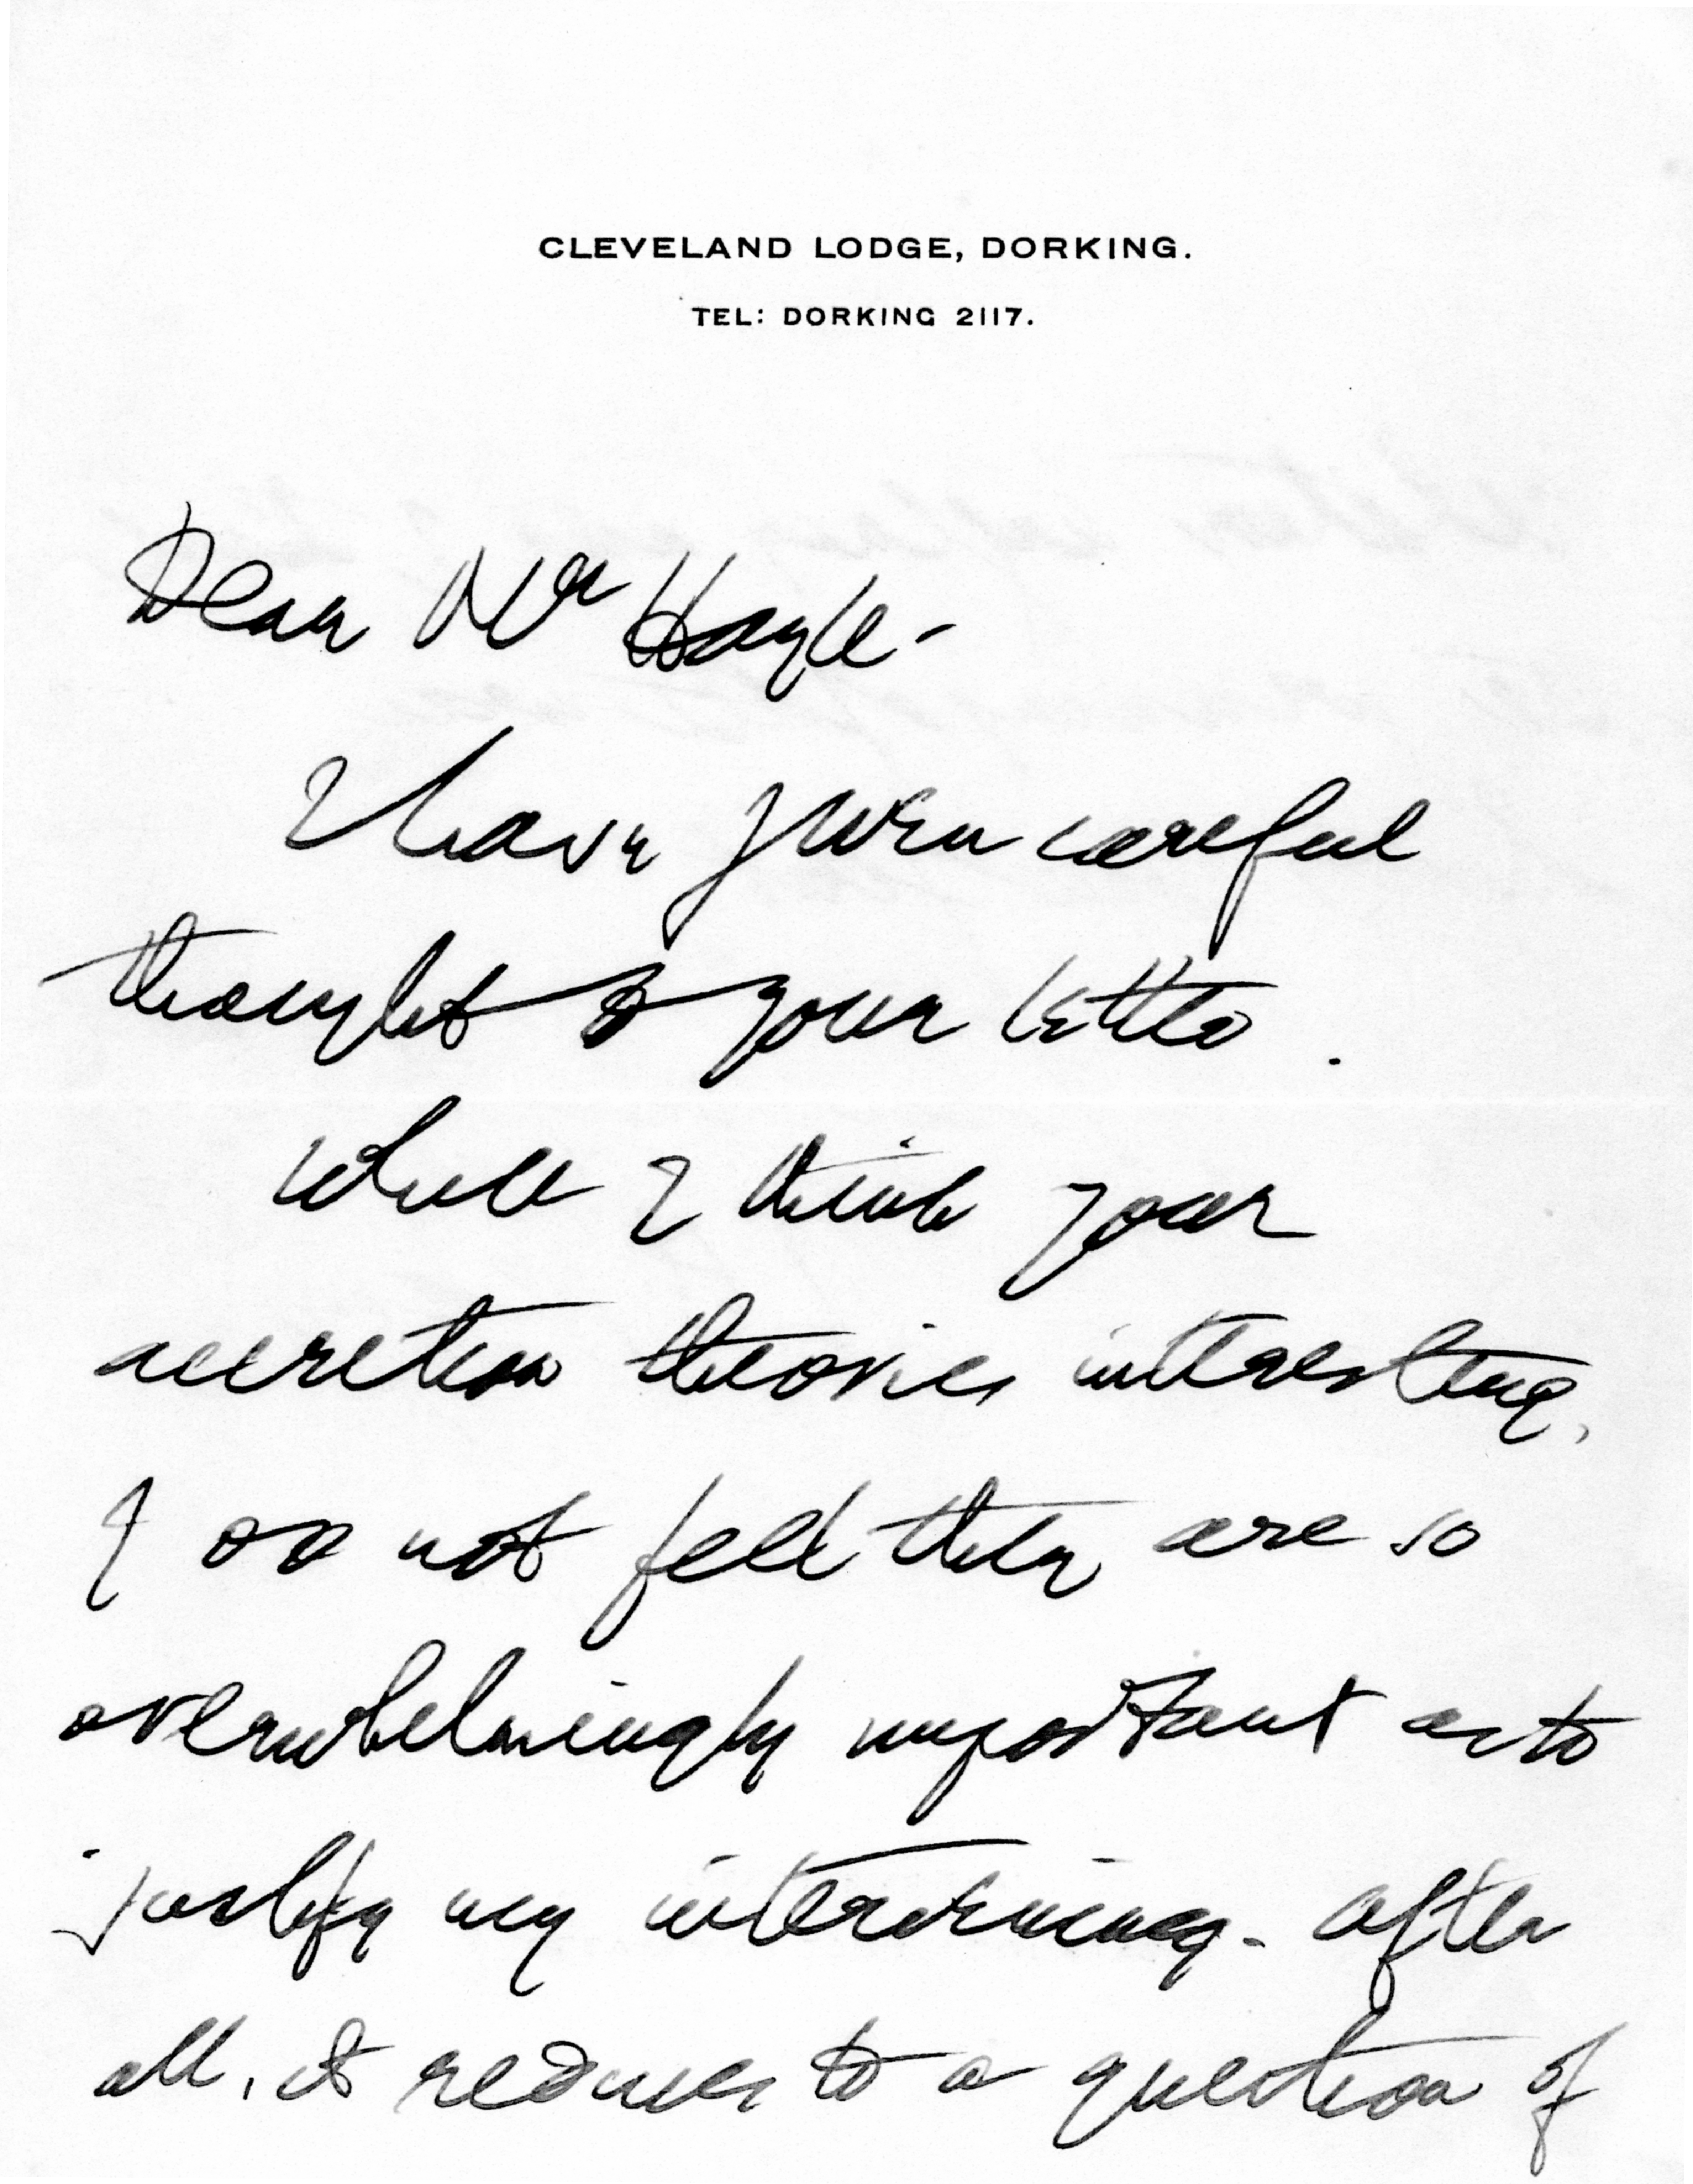 CLEVELAND LODGE, DORKING.
TEL: DORKING 2117.
Dear Mr Hoyle -
I have given careful
thought to your letter.
While I think your
accretion theories interesting,
I do not feel they are so
overwhelmingly important as to
justify my intervening - after
all, it reduces to a question of